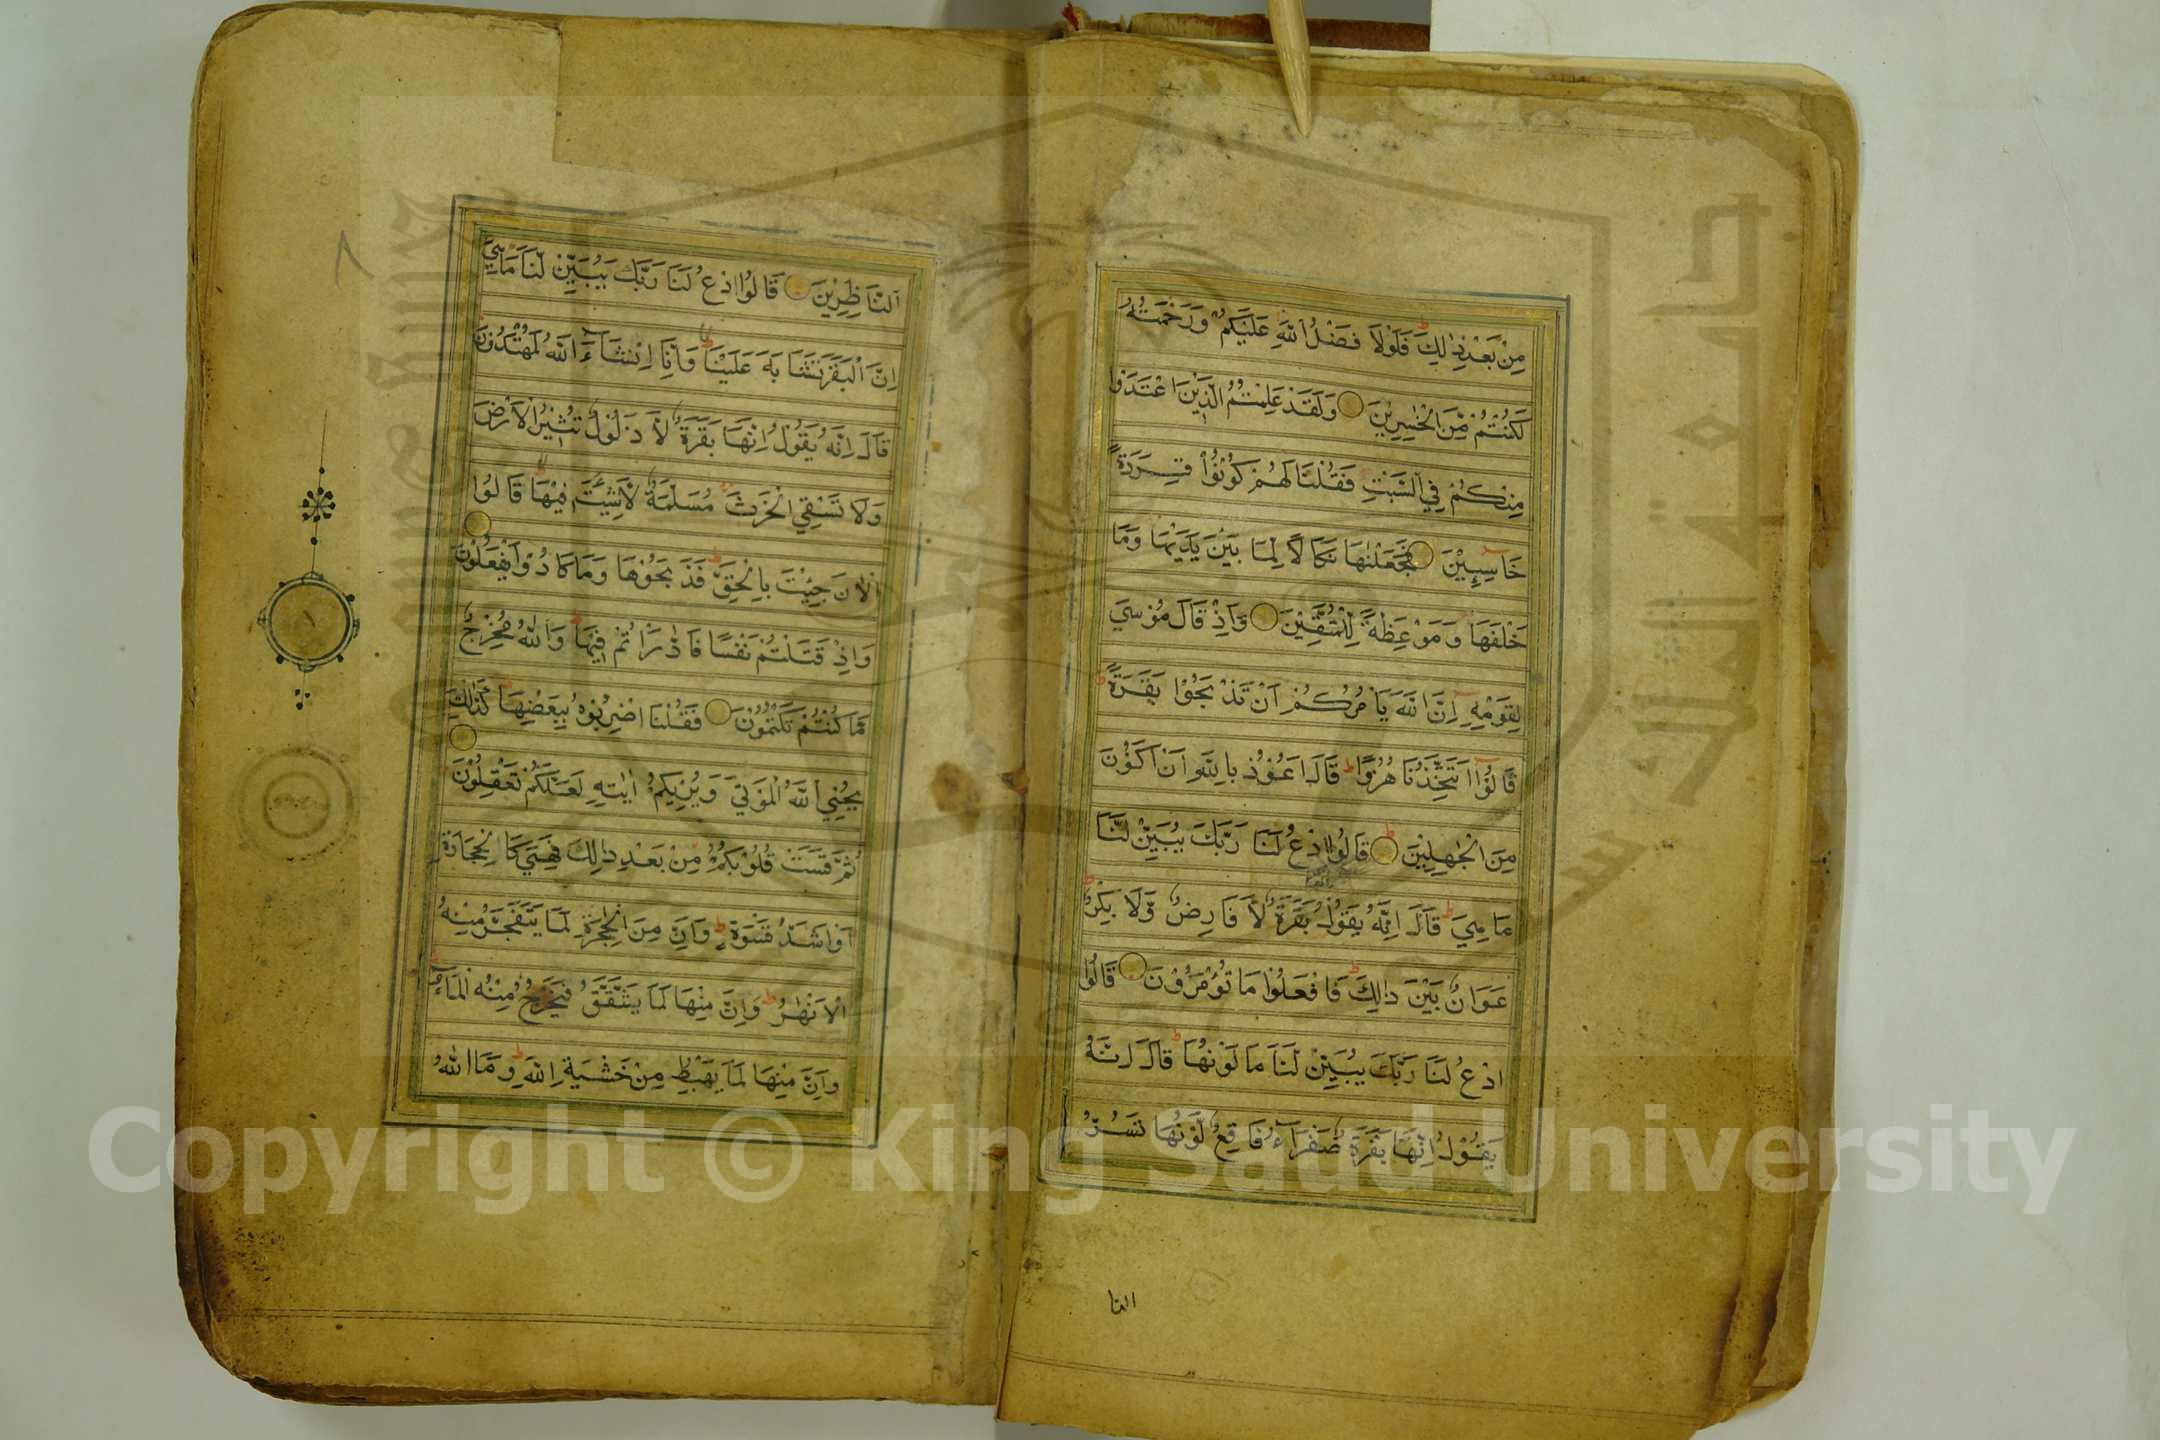 مِنْ بَعْدِ ذٰلِكَ فَلَوْلَا فَضْلُ اللّٰهِ عَلَيْكُمْ وَرَحْمَتُهُ
لَكُنْتُمْ مِّنَ الْخٰسِرِيْنَ وَلَقَدْ عَلِمْتُمُ الَّذِيْنَ اعْتَدَوْا
مِنْكُمْ فِي السَّبْتِ فَقُلْنَا لَهُمْ كُوْنُوْا قِرَدَةً
خَاسِـِٕيْنَ فَجَعَلْنٰهَا نَكَالًا لِّمَا بَيْنَ يَدَيْهَا وَمَا
خَلْفَهَا وَمَوْعِظَةً لِّلْمُتَّقِيْنَ وَاِذْ قَالَ مُوْسٰي
لِقَوْمِهٖ اِنَّ اللّٰهَ يَاْمُرُكُمْ اَنْ تَذْبَحُوْا بَقَرَةً ط
قَالُوْٓا اَتَتَّخِذُنَا هُزُوًا ط قَالَ اَعُوْذُ بِاللّٰهِ اَنْ اَكُوْنَ
مِنَ الْجٰهِلِيْنَ ط قَالُوا ادْعُ لَنَا رَبَّكَ يُبَيِّنْ لَّنَا
مَا هِيَ ط قَالَ اِنَّهٗ يَقُوْلُ بَقَرَةٌ لَّا فَارِضٌ وَّلَا بِكْرٌ ط
عَوَانٌ بَيْنَ ذٰلِكَ ط فَافْعَلُوْا مَا تُؤْمَرُوْنَ قَالُوا
ادْعُ لَنَا رَبَّكَ يُبَيِّنْ لَّنَا مَا لَوْنُهَا ط قَالَ اِنَّهٗ
يَقُوْلُ اِنَّهَا بَقَرَةٌ صَفْرَآءُ فَاقِعٌ لَّوْنُهَا تَسُرُّ
النا
٨
النَّاظِرِيْنَ قَالُوا ادْعُ لَنَا رَبَّكَ يُبَيِّنْ لَّنَا مَا هِيَ
اِنَّ الْبَقَرَ تَشَابَهَ عَلَيْنَا ط وَاِنَّآ اِنْشَآءَ اللّٰهُ لَمُهْتَدُوْنَ
قَالَ اِنَّهٗ يَقُوْلُ اِنَّهَا بَقَرَةٌ لَّا ذَلُوْلٌ تُثِيْرُ الْاَرْضَ
وَلَا تَسْقِي الْحَرْثَ مُسَلَّمَةٌ لَّاشِيَةَ فِيْهَا ط قَالُوا
الْاٰنَ جِئْتَ بِالْحَقِّ ط فَذَبَحُوْهَا وَمَا كَادُوْا يَفْعَلُوْنَ
وَاِذْ قَتَلْتُمْ نَفْسًا فَادّٰرَاْتُمْ فِيْهَا ط وَاللّٰهُ مُخْرِجٌ
مَّا كُنْتُمْ تَكْتُمُوْنَ فَقُلْنَا اضْرِبُوْهُ بِبَعْضِهَا ط كَذٰلِكَ
يُحْيِي اللّٰهُ الْمَوْتٰي وَيُرِيْكُمْ اٰيٰتِهٖ لَعَلَّكُمْ تَعْقِلُوْنَ
ثُمَّ قَسَتْ قُلُوْبُكُمْ مِّنْ بَعْدِ ذٰلِكَ فَهِيَ كَالْحِجَارَةِ
اَوْ اَشَدُّ قَسْوَةً ط وَاِنَّ مِنَ الْحِجَارَةِ لَمَا يَتَفَجَّرُ مِنْهُ
الْاَنْهٰرُ ط وَاِنَّ مِنْهَا لَمَا يَشَّقَّقُ فَيَخْرُجُ مِنْهُ الْمَآءُ ط
وَاِنَّ مِنْهَا لَمَا يَهْبِطُ مِنْ خَشْيَةِ اللّٰهِ ط وَمَا اللّٰهُ
Copyright © King Saud University